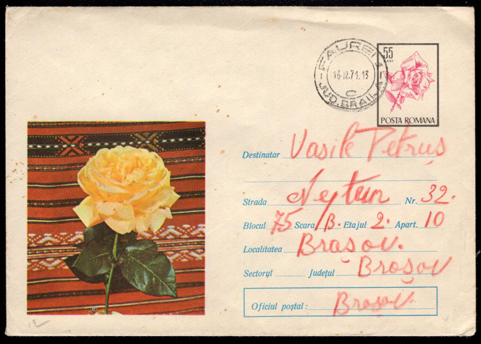 FAUREI
16.IX.71.13
C
JUD. BRAILA
55
POSTA ROMANA
Destinatar Vasile Petruș
Strada Neptun Nr. 32.
Blocul 75 Scara /B. Etajul 2. Apart. 10
Localitatea Brașov.
Sectorul Județul Brașov
Oficiul poștal: Brașov.